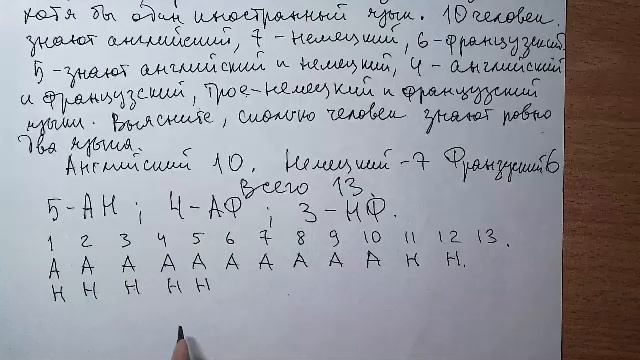 хотя бы один иностранный язык. 10 человек
знают английский, 7 - немецкий, 6 - французский.
5 - знают английский и немецкий, 4 - английский
и французский, трое - немецкий и французский
языки. Выясните, сколько человек знают ровно
два языка.
Английский 10. Немецкий - 7 Французский 6
Всего 13.
5 - АН ; 4 - АФ ; 3 - НФ.
1 2 3 4 5 6 7 8 9 10 11 12 13.
А А А А А А А А А А Н Н.
Н Н Н Н Н